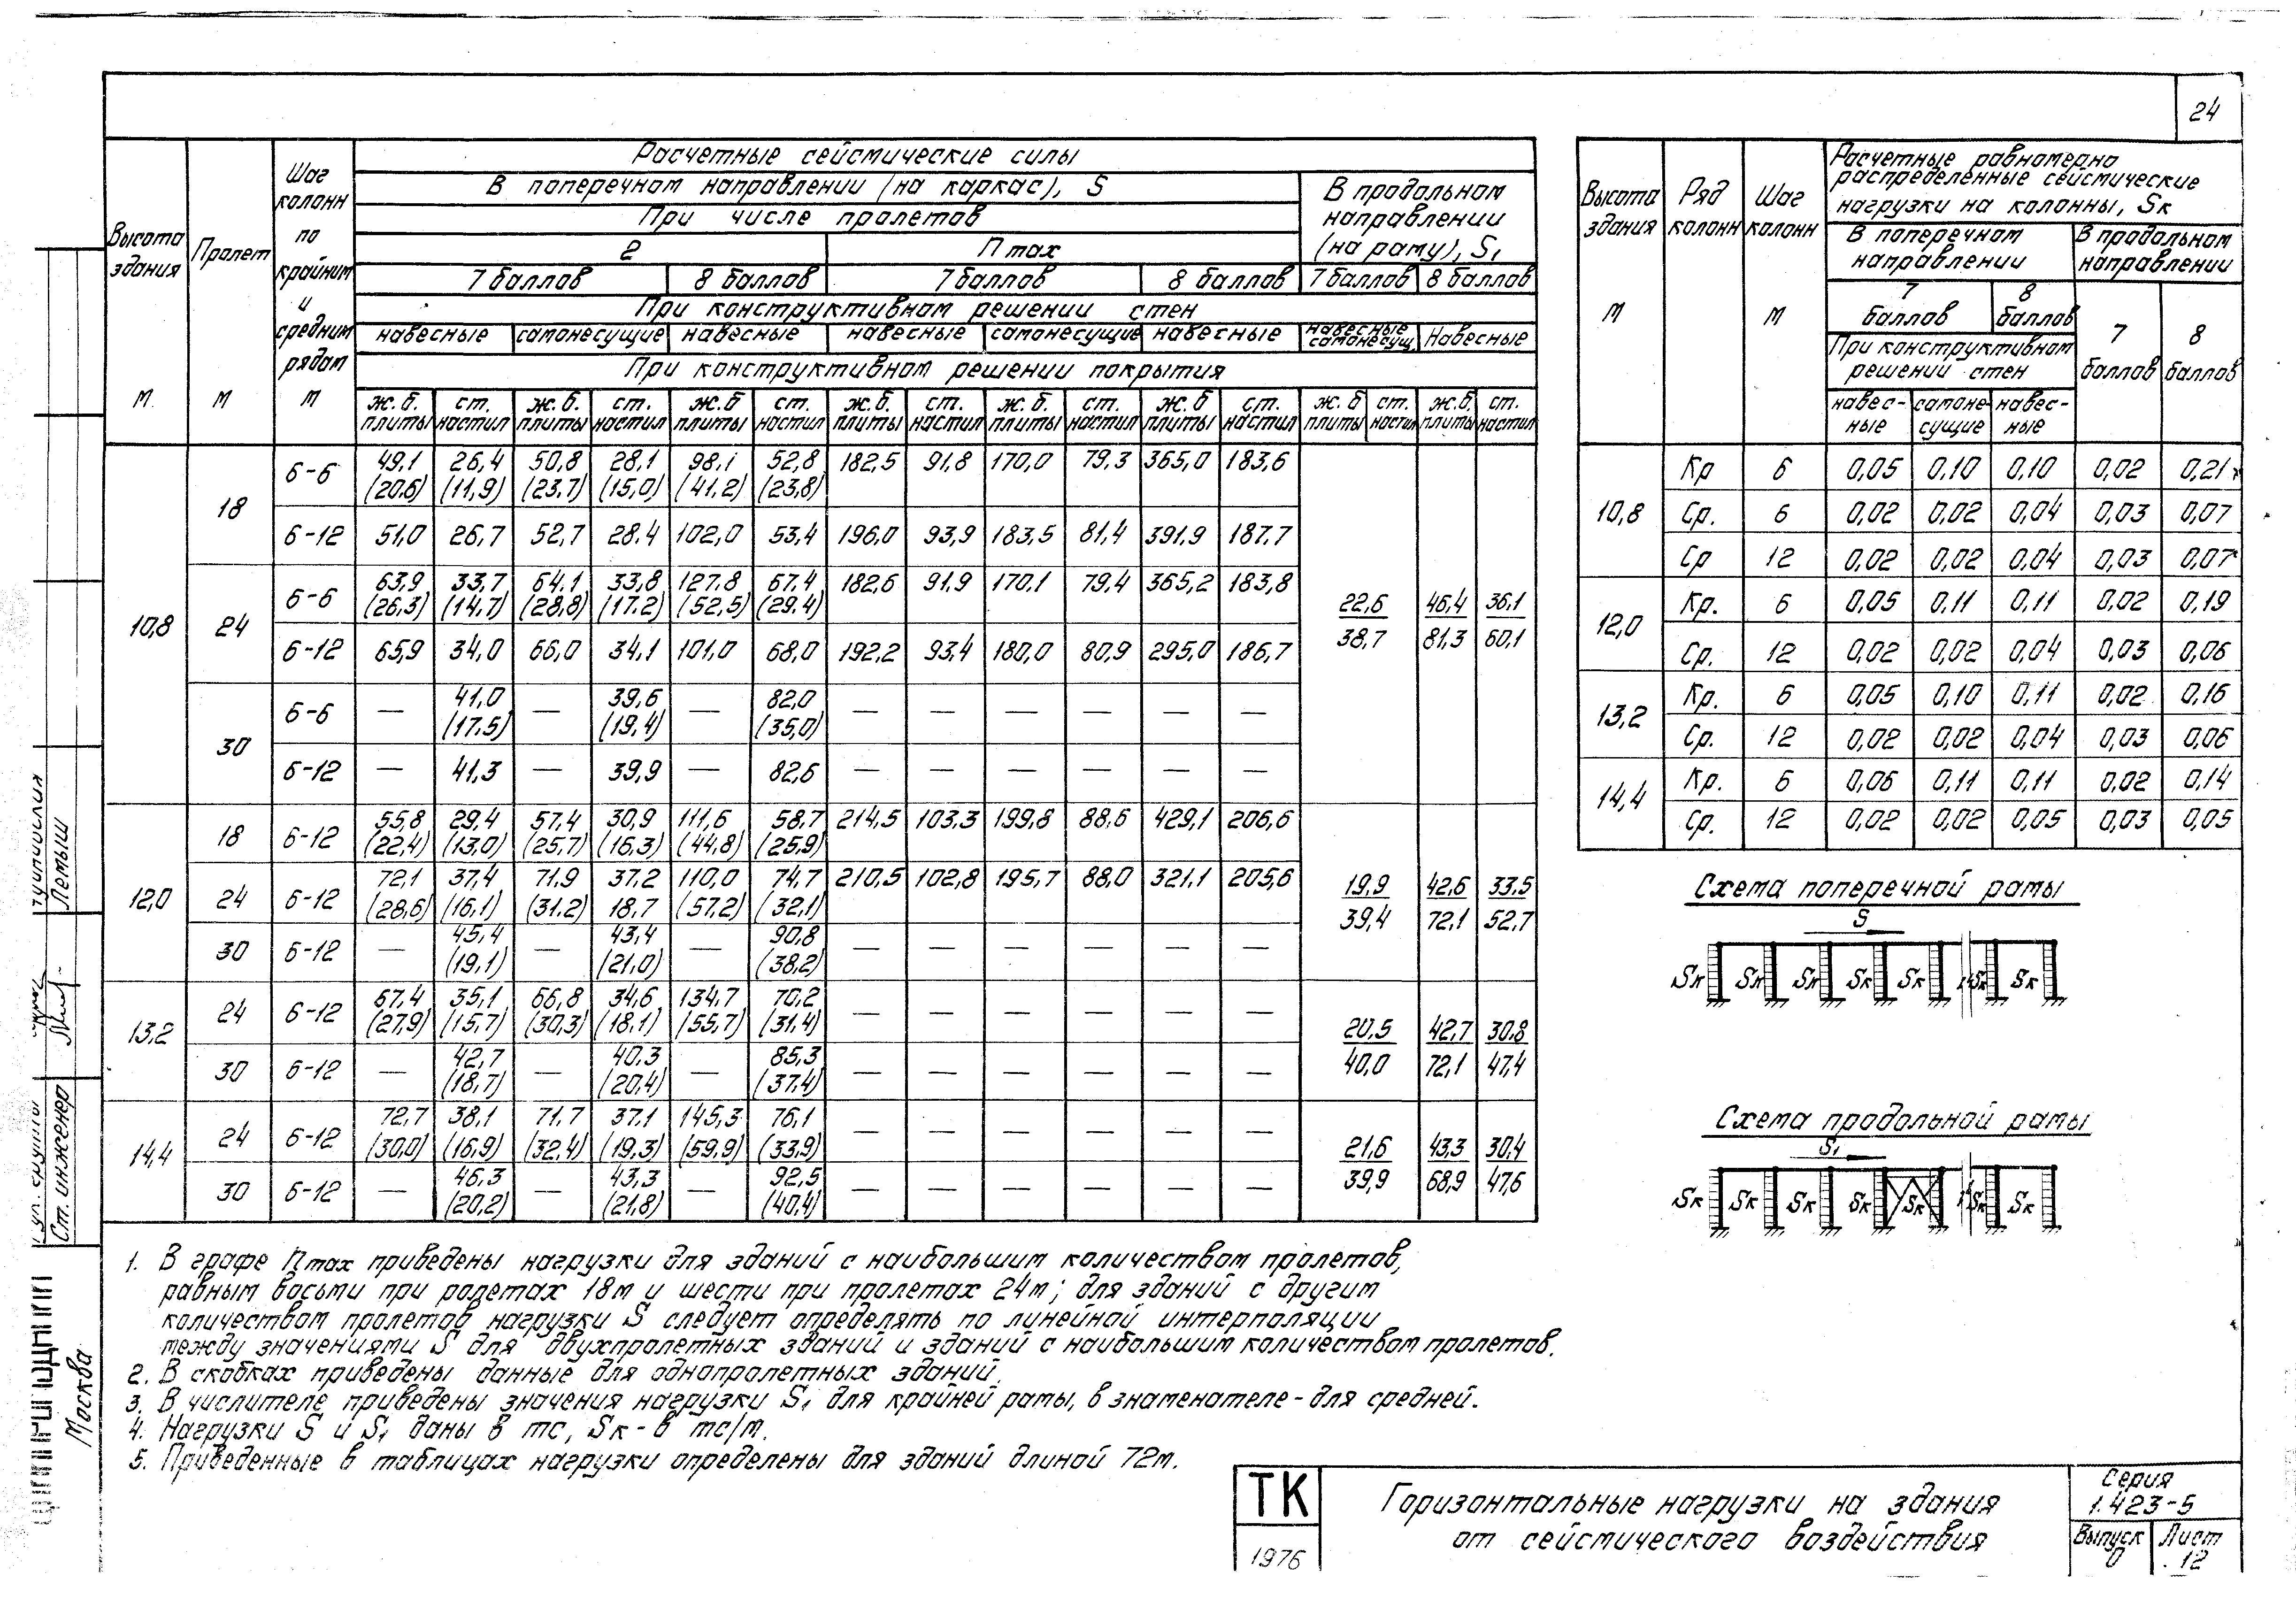 24
Расчетные сейсмические силы
В поперечном направлении (на каркас), S
В продольном направлении (на раму), S₁
При числе пролетов
2
n max
Высота здания м
Пролет м
Шаг колонн по крайним и средним рядам м
7 баллов 8 баллов 7 баллов 8 баллов 7 баллов 8 баллов
При конструктивном решении стен
навесные самонесущие навесные навесные самонесущие навесные навесные самонесущ. Навесные
При конструктивном решении покрытия
ж.б. плиты ст. настил ж.б. плиты ст. настил ж.б плиты ст. настил ж.б плиты ст. настил ж.б. плиты ст. настил ж.б плиты ст. настил ж.б плиты ст. настил ж.б. плиты ст. настил
10,8
18
6-6 49,1 26,4 50,8 28,1 98,1 52,8 182,5 91,8 170,0 79,3 365,0 183,6
(20,6) (11,9) (23,7) (15,0) (41,2) (23,8)
6-12 51,0 26,7 52,7 28,4 102,0 53,4 196,0 93,9 183,5 81,4 391,9 187,7
24
6-6 63,9 33,7 64,1 33,8 127,8 67,4 182,6 91,9 170,1 79,4 365,2 183,8
(26,3) (14,7) (28,8) (17,2) (52,5) (29,4)
22,6 46,4 36,1
38,7 81,3 60,1
6-12 65,9 34,0 66,0 34,1 101,0 68,0 192,2 93,4 180,0 80,9 295,0 186,7
30
6-6 — 41,0 — 39,6 — 82,0 — — — — — —
(17,5) (19,4) (35,0)
6-12 — 41,3 — 39,9 — 82,6 — — — — — —
12,0
18 6-12 55,8 29,4 57,4 30,9 111,6 58,7 214,5 103,3 199,8 88,6 429,1 206,6
(22,4) (13,0) (25,7) (16,3) (44,8) (25,9)
24 6-12 72,1 37,4 71,9 37,2 110,0 74,7 210,5 102,8 195,7 88,0 321,1 205,6
(28,6) (16,1) (31,2) 18,7 (57,2) (32,1)
19,9 42,6 33,5
39,4 72,1 52,7
30 6-12 — 45,4 — 43,4 — 90,8 — — — — — —
(19,1) (21,0) (38,2)
13,2
24 6-12 67,4 35,1 66,8 34,6 134,7 70,2 — — — — — —
(27,9) (15,7) (30,3) (18,1) (55,7) (31,4)
20,5 42,7 30,8
40,0 72,1 47,4
30 6-12 — 42,7 — 40,3 — 85,3 — — — — — —
(18,7) (20,4) (37,4)
14,4
24 6-12 72,7 38,1 71,7 37,1 145,3 76,1 — — — — — —
(30,0) (16,9) (32,4) (19,3) (59,9) (33,9)
21,6 43,3 30,4
39,9 68,9 47,6
30 6-12 — 46,3 — 43,3 — 92,5 — — — — — —
(20,2) (21,8) (40,4)
Высота здания м
Ряд колонн
Шаг колонн м
Расчетные равномерно
распределенные сейсмические
нагрузки на колонны, Sк
В поперечном направлении
В продольном направлении
7 баллов 8 баллов 7 баллов 8 баллов
При конструктивном решении стен
навесные самонесущие навесные
10,8 Кр 6 0,05 0,10 0,10 0,02 0,21
Ср. 6 0,02 0,02 0,04 0,03 0,07
Ср 12 0,02 0,02 0,04 0,03 0,07
12,0 Кр. 6 0,05 0,11 0,11 0,02 0,19
Ср. 12 0,02 0,02 0,04 0,03 0,06
13,2 Кр. 6 0,05 0,10 0,11 0,02 0,16
Ср. 12 0,02 0,02 0,04 0,03 0,06
14,4 Кр. 6 0,06 0,11 0,11 0,02 0,14
Ср. 12 0,02 0,02 0,05 0,03 0,05
Схема поперечной рамы
S
Sк Sк Sк Sк Sк Sк Sк
Схема продольной рамы
S₁
Sк Sк Sк Sк Sк Sк Sк
1. В графе n max приведены нагрузки для зданий с наибольшим количеством пролетов,
равным восьми при ролетах 18м и шести при пролетах 24м; для зданий с другим
количеством пролетов нагрузки S следует определять по линейной интерполяции
между значениями S для двухпролетных зданий и зданий с наибольшим количеством пролетов.
2. В скобках приведены данные для однопролетных зданий.
3. В числителе приведены значения нагрузки S₁ для крайней рамы, в знаменателе - для средней.
4. Нагрузки S и S₁ даны в тс, Sк - в тс/м.
5. Приведенные в таблицах нагрузки определены для зданий длиной 72м.
ТК
1976
Горизонтальные нагрузки на здания
от сейсмического воздействия
Серия
1.423-5
Выпуск 0
Лист 12
Летыш
Ст. инженер
Москва